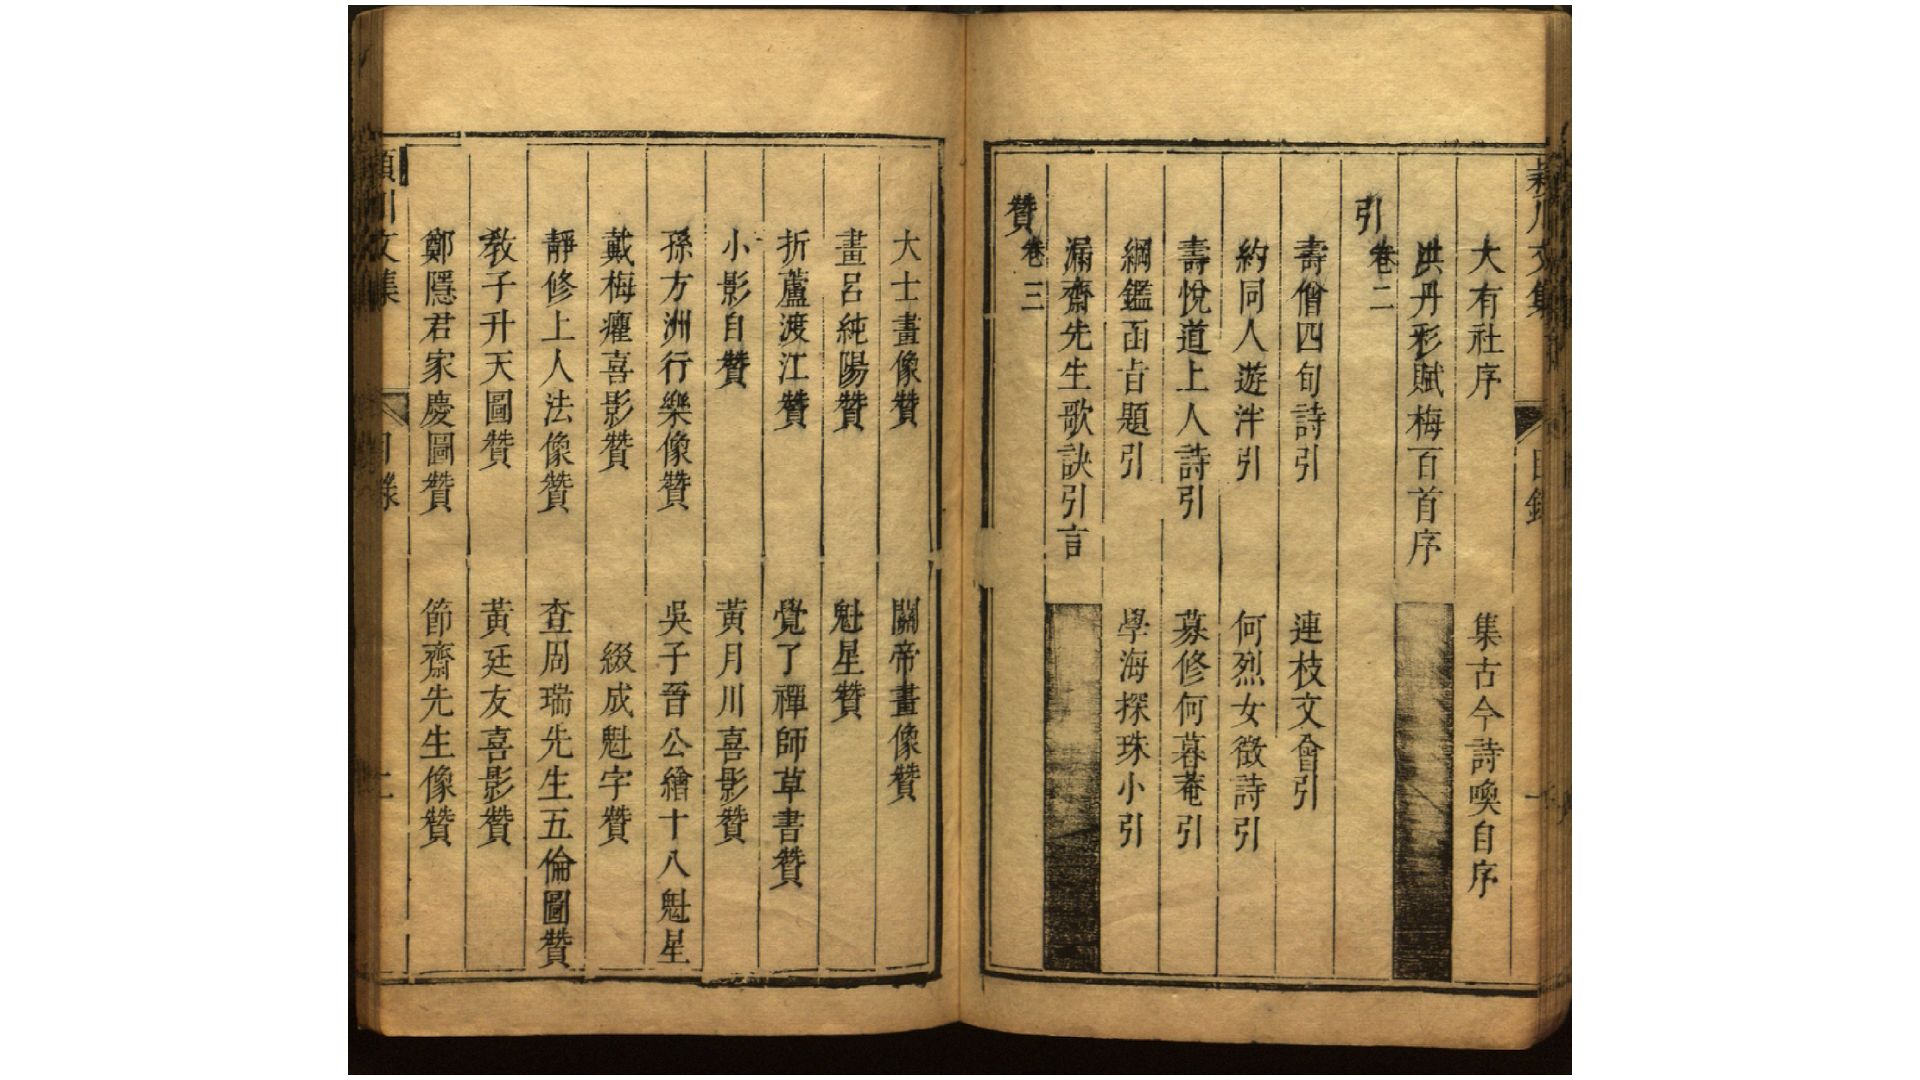 大有社序 集古今詩喚自序
洪丹彩賦梅百首序
引 卷二
壽僧四旬詩引 連枝文會引
約同人遊泮引 何烈女徵詩引
壽悅道上人詩引 募修何暮菴引
綱鑑函㫖題引 學海探珠小引
漏齋先生歌訣引言
贊 卷三
大士畫像贊 關帝畫像贊
畫呂純陽贊 魁星贊
折蘆渡江贊 覺了禪師草書贊
小影自贊 黃月川喜影贊
孫方洲行樂像贊 吳子晉公繪十八魁星
戴梅癯喜影贊 綴成魁字贊
靜修上人法像贊 查周瑞先生五倫圖贊
教子升天圖贊 黃廷友喜影贊
鄭隱君家慶圖贊 節齋先生像贊
川文集 目錄